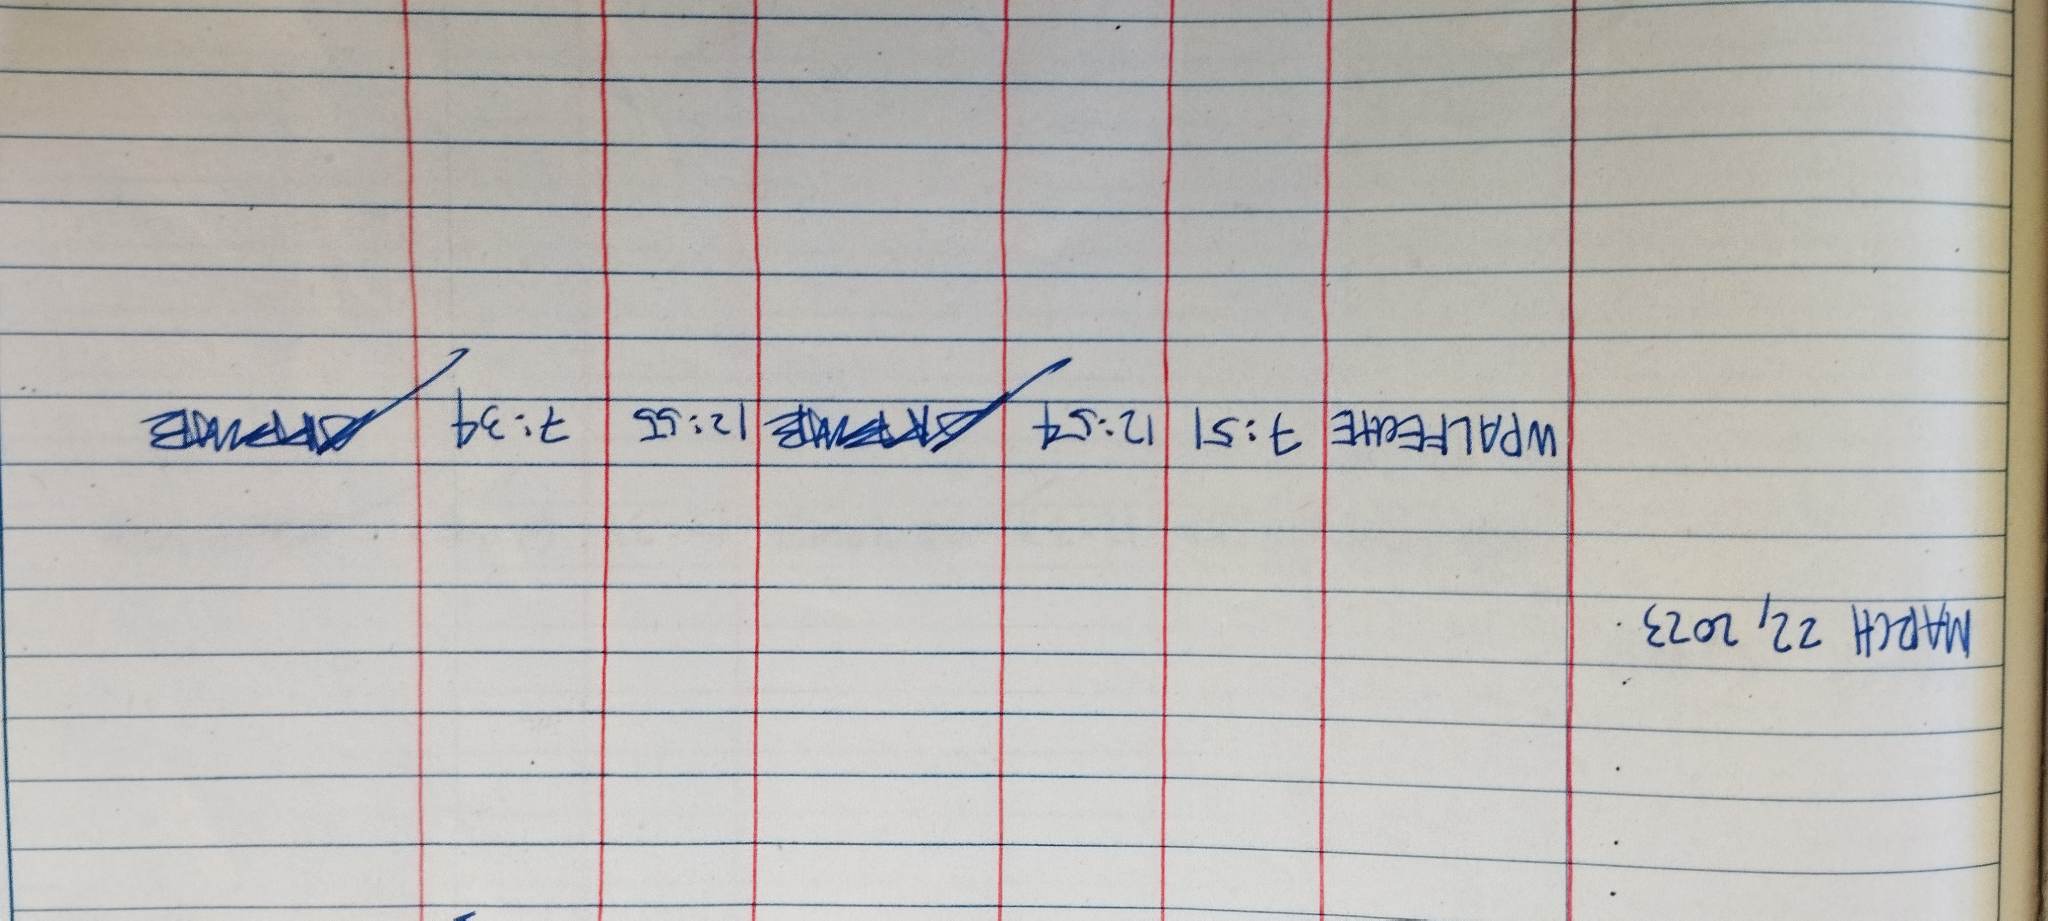 MARCH 22, 2023.
WPALFECHE 7:51 12:54 12:55 7:34